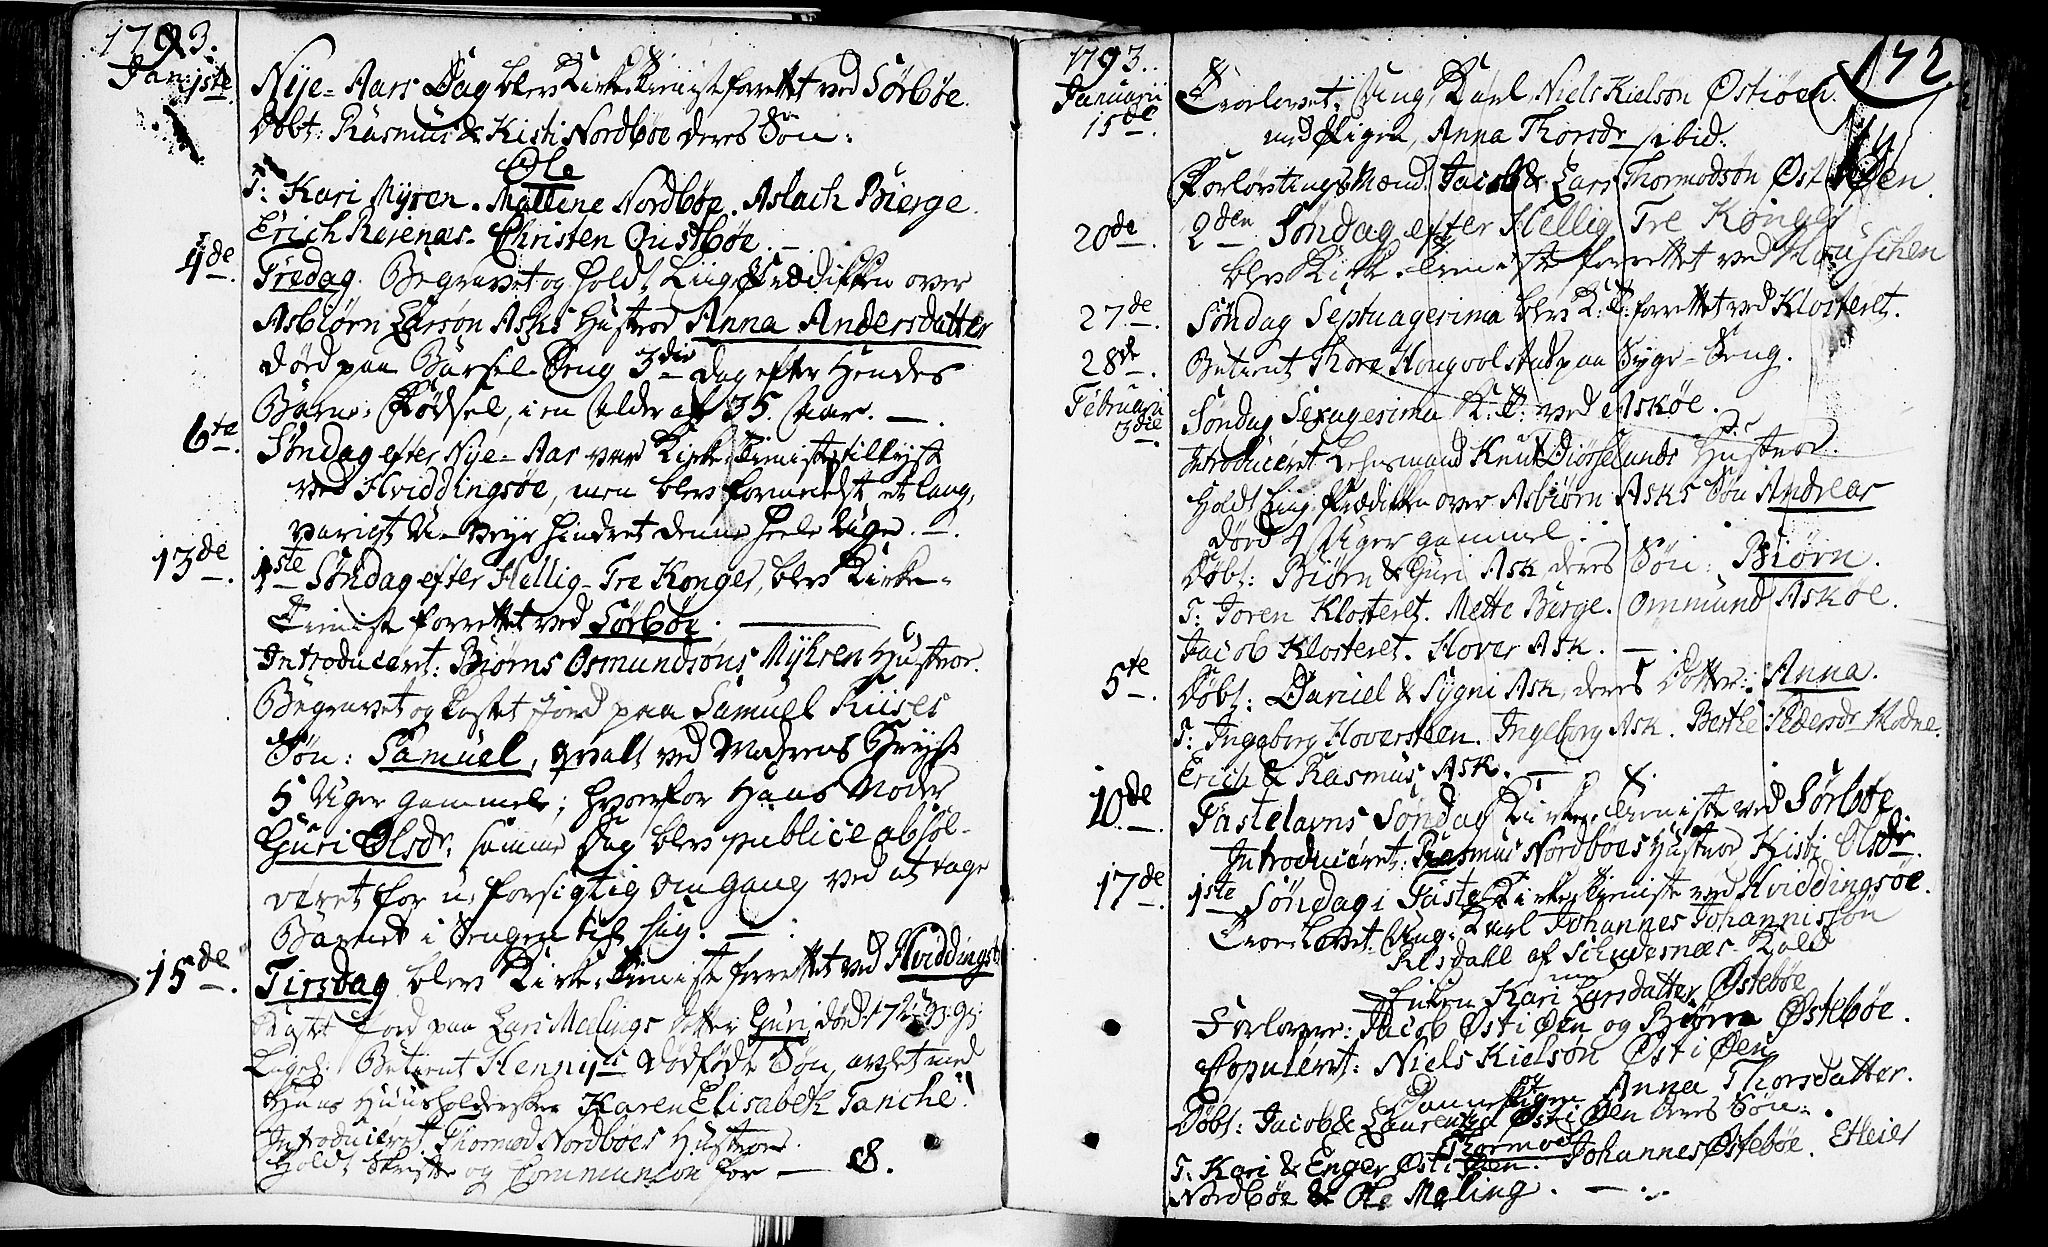 1793.
Jan: 1ste Nÿe-Aars Dag blev Kirke-Tieniste forrettet ved Sörböe.
Döbt: Rasmus & Kisti Nordböe deres Sön:
Ole
T: Kari Myren. Mallene Nordböe. Aslach Bierge.
Erich Reienæs. Christen Austböe.
4de. Fredag. Begravet og holdt Liig-Prædikken over
Asbiörn Larsön Asks Hustroe Anna Andersdatter
död paa Barsel-Seng 3die Dag efter Hendes
Barne-Födsel, i en Alder af 35 Aar.
6te. Söndag efter Nÿe-Aar var Kirke-Tieniste tillyst
ved Hviddingsöe, men blev formedelst et lang-
varigt U-veyr hindret denne heele Uge.
13de. 1ste Söndag efter Hellig-Tre Konger, blev Kirke-
Tieniste forrettet ved Sörböe.
Introduceret: Biörns Osmundsöns Myhren Hustroe.
Begravet og kastet Jord paa Samuel Riises
Sön: Samuel, qvalt ved Moderens Bryst
5 Uger gammel; hvorfor Hans Moder
Guri Olsdr. samme Dag blev publice absol-
veret for u-forsigtig Omgang ved at tage
Barnet i Sengen til sig.
15de. Tirsdag blev Kirke-Tieniste forrettet ved Hviddings:
Kastet Jord paa Lars Melings Dotter Guri, död
Liges: Betient Dödföde Sön, avlet med
Hans Huusholderske Karen Elisabeth Tanche.
Introduceret Thormod Nordböes Hustroe.
Holdt Skrifte og Communion for — 8.
1793. 172
Januari
15de. Troelovet Ung Karl Niels Kielsön Östiöen
med Pigen Anna Thorsdr ibid:
Forlövnings Mænd Jacob & Lars Thormodsön Öst i Öen.
20de. 2den Söndag efter Hellig Tre Konger
blev Kirke-Tieniste forrettet ved
27de. Söndag Septuagesima blev K: T: forrettet ved Klosteret.
28de Betient Thore Hougvolstad paa Syge-Seng.
Februari
3die. Söndag Sexagesima K: T: ved Asköe.
Introduceret Lehnsmand Knut Hustroe.
Holdt Liig-Prædikken over Asbiörn Asks Sön Andreas
död 4 Uger gammel.
Döbt: Biörn & Guri Ask, deres Sön: Biörn.
T: Joren Klosteret. Mette Berge. Ommund Asköe.
Jacob Klosteret. Hover Ask.
5te. Döbt: Daniel & Sygni Ask, deres Dotter: Anna.
T: Ingeborg Hoversteen. Ingeborg Ask. Berthe Pedersdr
Erich & Rasmus Ask.
10de. Fastelavns Söndag Kirke-Tieniste ved Sörböe.
Introduceret: Rasmus Nordböes Hustroe Kisti Olsdr.
17de. 1ste Söndag i Faste Kirke-Tieniste ved Hviddingsöe.
Troe-lovet Ung-Karl Johannes Johannissön
af Schudesnæs
med
Enken Kari Larsdatter Östeböe
Forlovere: Jacob Öst i Öen og Biörn Östeböe.
Copuleret: Niels Kielsön Öst i Öen
og
Anna Thorsdatter.
Döbt: Jacob & Laurentza Öst i Öen deres Sön:
Thormod
T: Kari & Enger Öst i Öen. Johannes Östeböe.
Nordböe & Ole Meling.